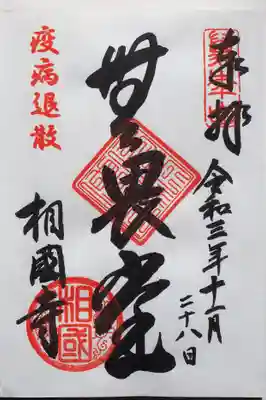 奉拝
令和三年十一月
二十八日
無畏堂
相國寺
疫病退散
相國